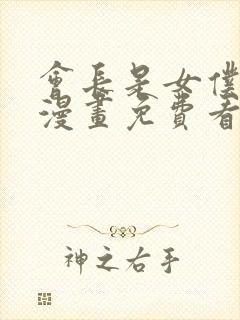 會長是女僕
漫畫免費看
神之右手